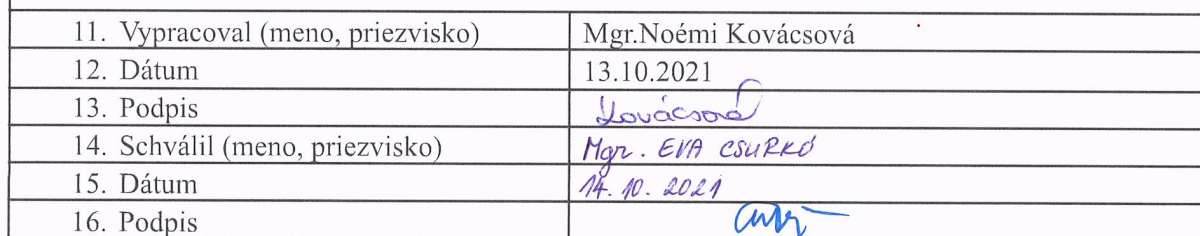 11. Vypracoval (meno, priezvisko) Mgr.Noémi Kovácsová
12. Dátum 13.10.2021
13. Podpis Kovácsová
14. Schválil (meno, priezvisko) Mgr. EVA CSURKÓ
15. Dátum 14. 10. 2021
16. Podpis